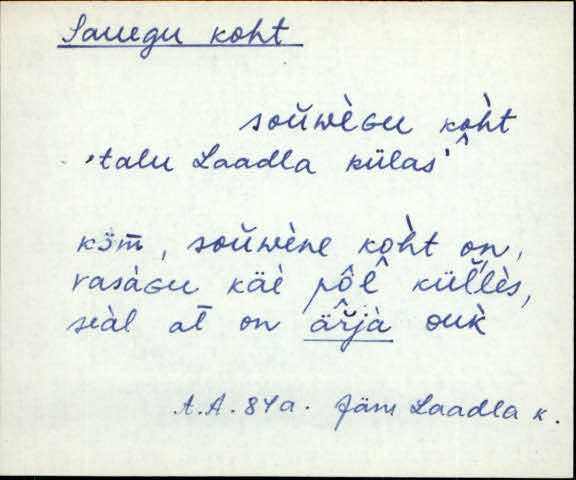 Sauegu koht
soŭwèGu kòht
'talu Laadla külas'
köm̄, soŭwène kòht on,
vasàGu käè pôl̂ küĺlès,
seàl at̄ on är̆jà ouk̀
A.A. 84a. Jäm Laadla k.